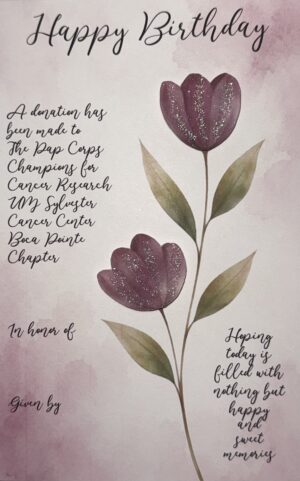 Happy Birthday
A donation has
been made to
The Pap Corps
Champions for
Cancer Research
UM Sylvester
Cancer Center
Boca Pointe
Chapter
In honor of
Given by
Hoping
today is
filled with
nothing but
happy
and
sweet
memories